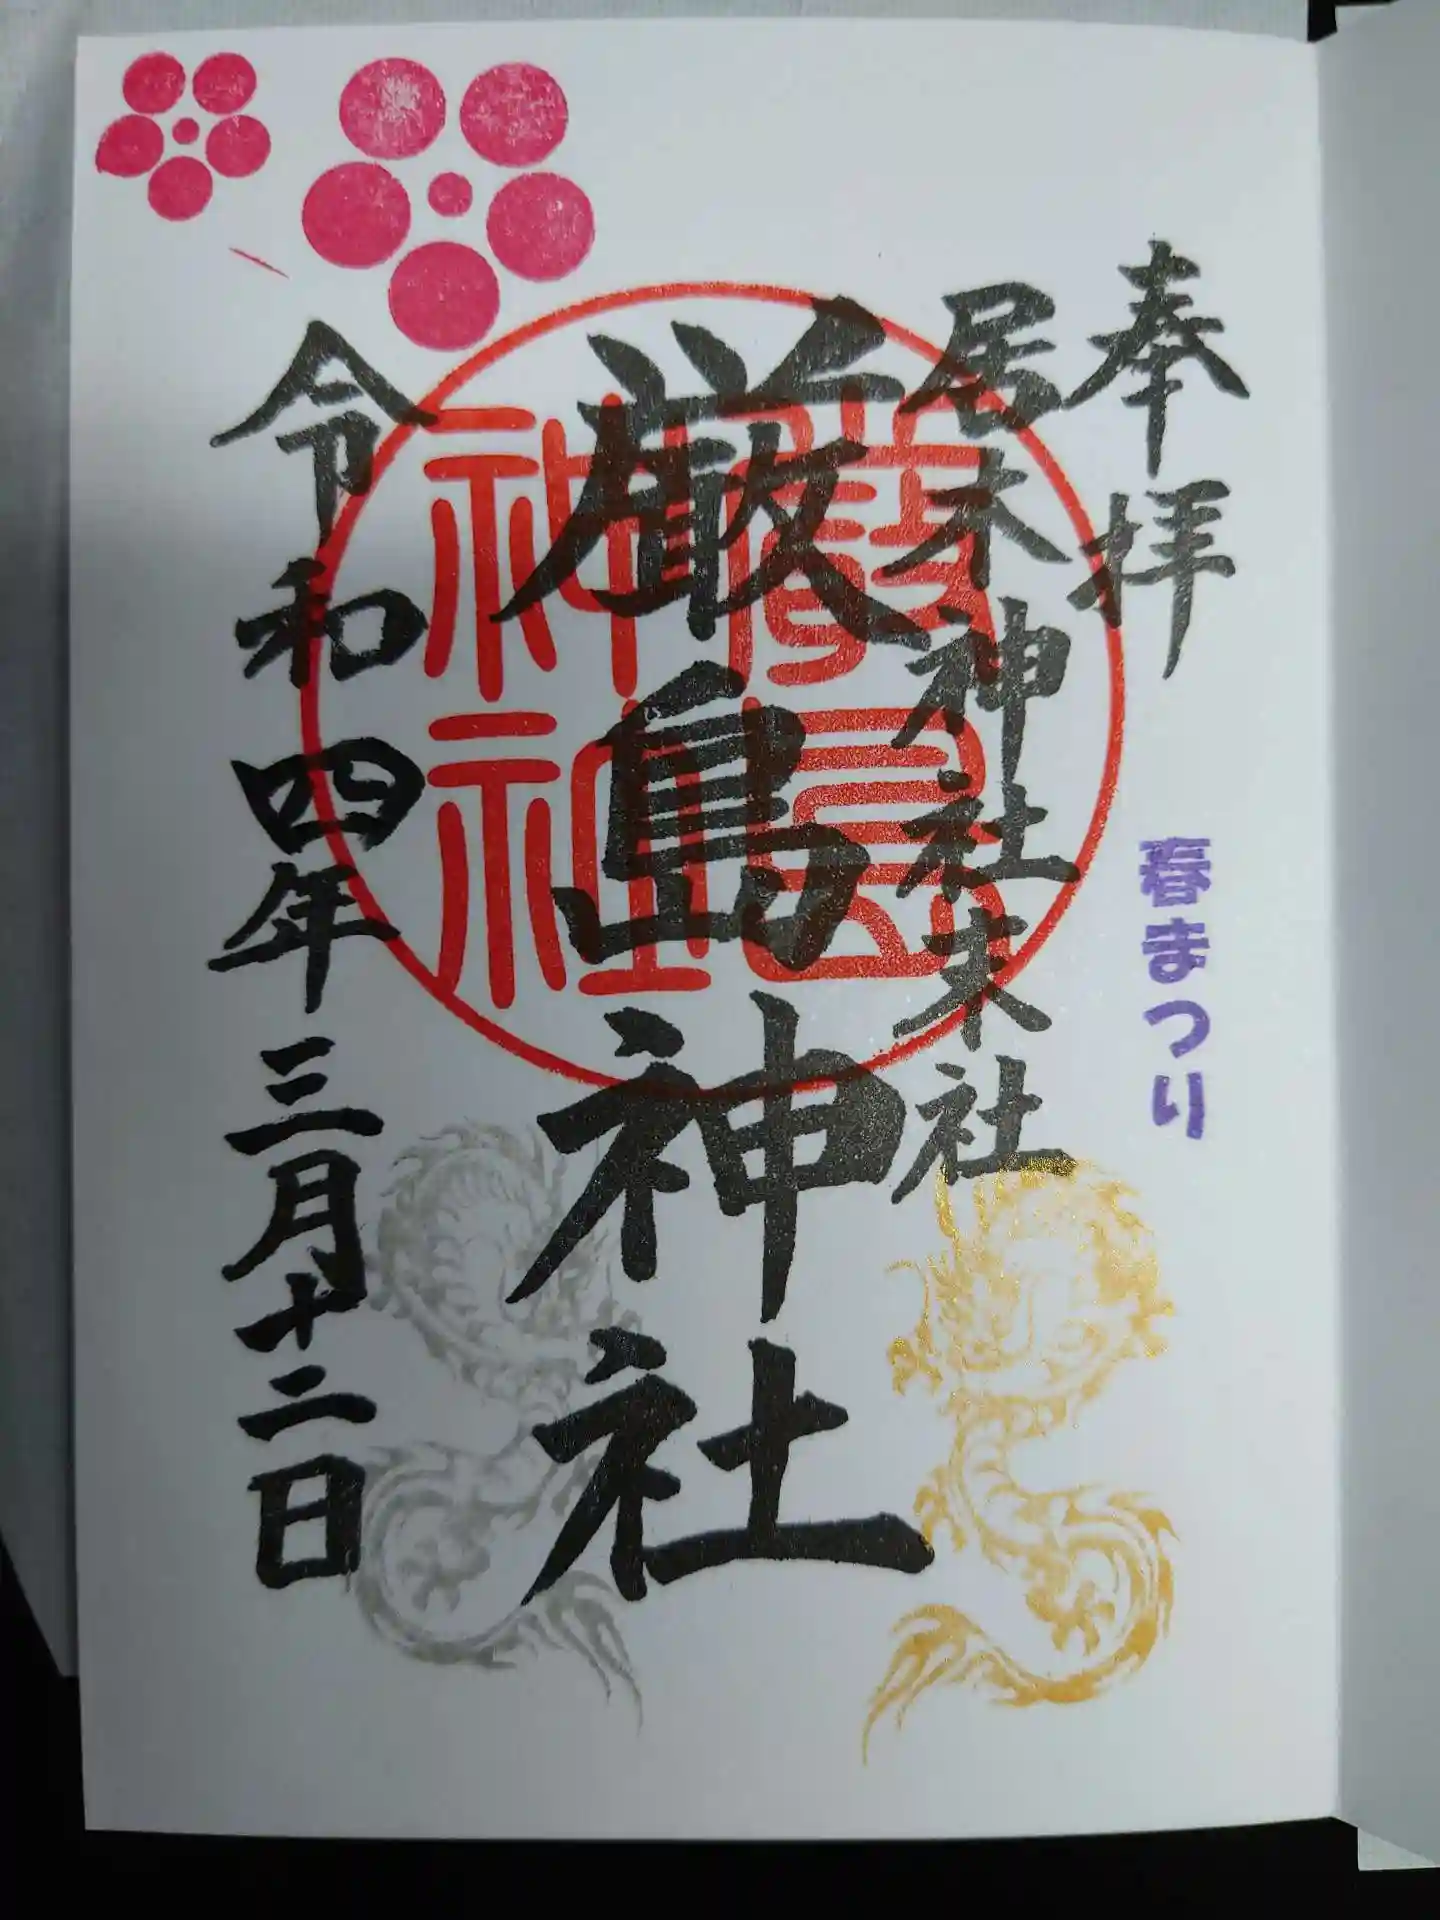 奉拝
春まつり
居木神社末社
厳島神社
嚴島神社
令和四年三月十二日